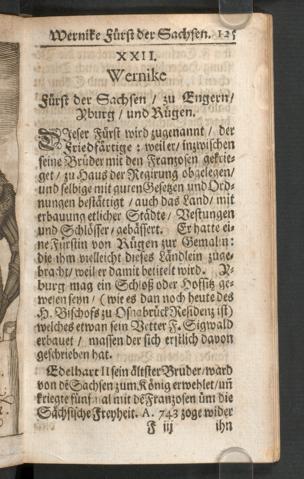 Wernike Fürst der Sachsen. 125
XXII.
Wernike
Fürst der Sachsen / zu Engern /
Yburg / und Rügen.
Dieser Fürst wird zugenannt / der
Friedsärtige: weil er / inzwischen
seine Brüder mit den Franzosen gekrie-
get / zu Haus der Regirung obgelegen /
und selbige mit guten Gesetzen und Ord-
nungen bestättigt / auch das Land / mit
erbauung etlicher Städte / Vestungen
und Schlösser / gebässert. Er hatte ei-
ne Fürstin von Rügen zur Gemalin:
die ihm vielleicht dieses Ländlein zuge-
bracht / weil er damit betitelt wird. Y-
burg mag ein Schloß oder Hofsitz ge-
wesen seyn / (wie es dan noch heute des
H. Bischofs zu Osnabrück Residenz ist)
welches etwan sein Vetter F. Sigwald
erbauet / massen der sich erstlich davon
geschrieben hat.
Edelhart II sein ältester Bruder / ward
von dẽ Sachsen zum König erwehlet / uñ
kriegte fünfmal mit dẽ Franzosen üm die
Sächsische Freyheit. A. 743 zoge wider
F iij ihn